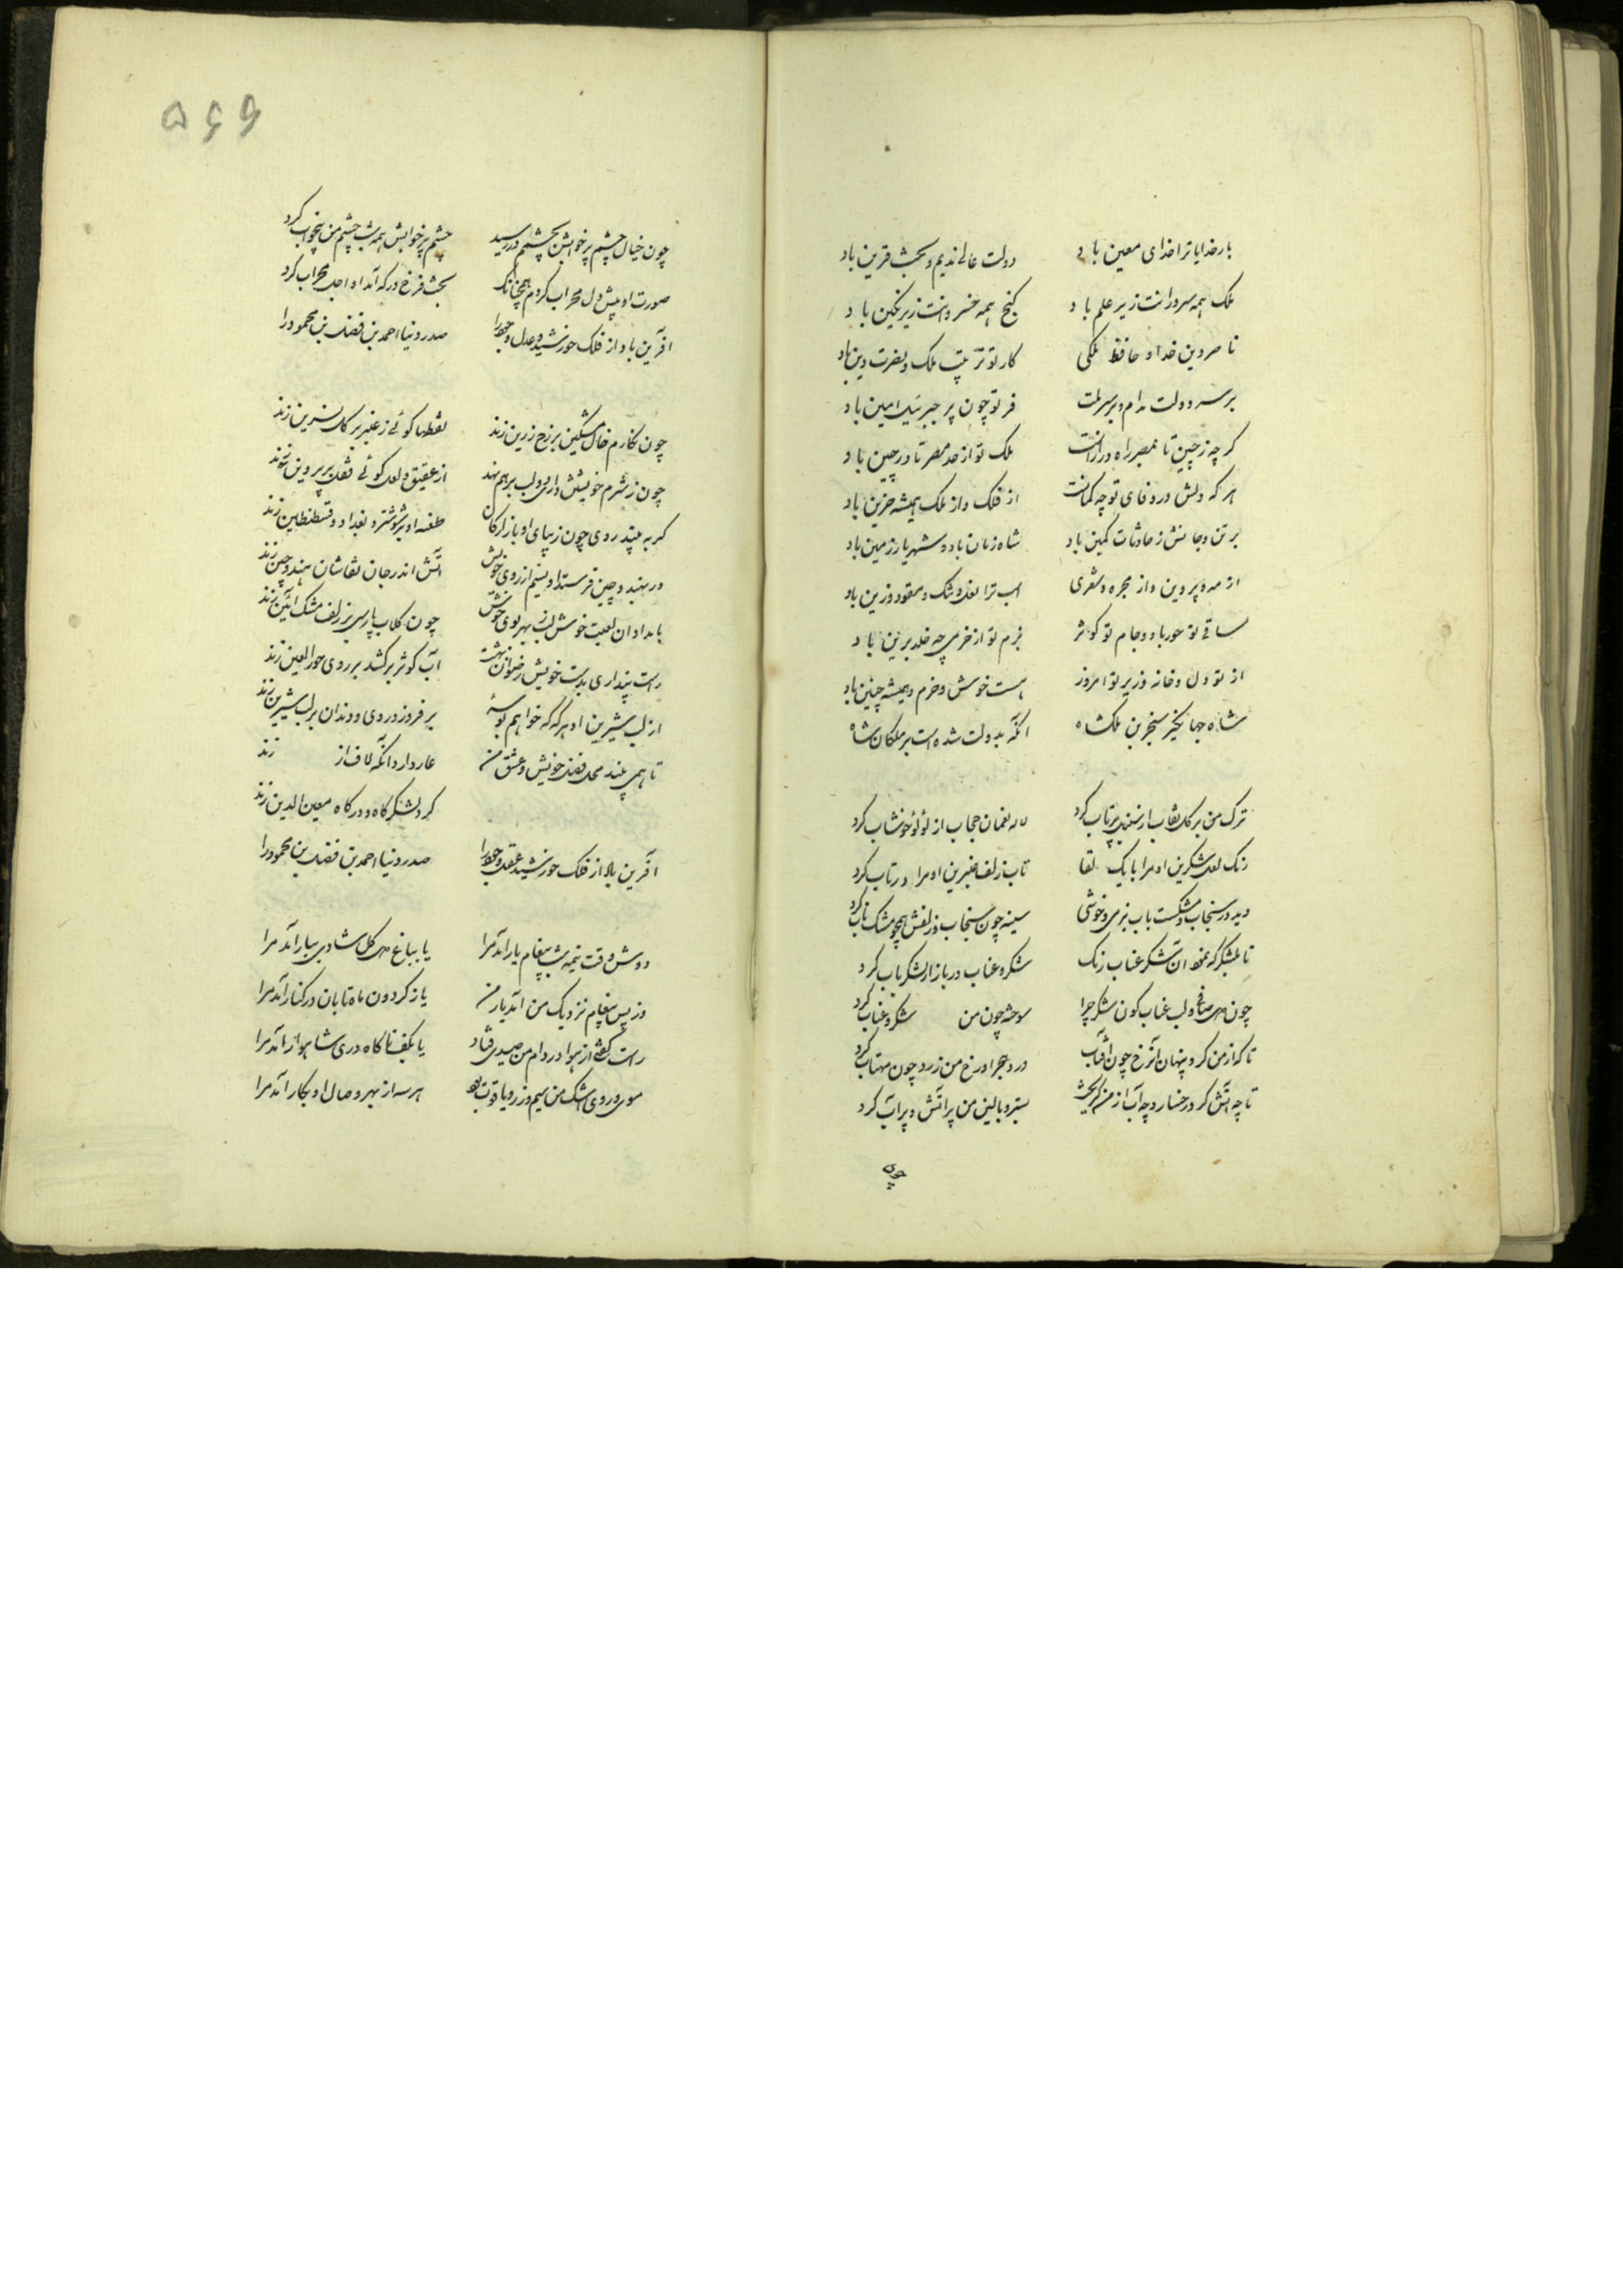 بارخدایا ترا خدای معین باد دولت عالی ندیم و بخت قرین باد
ملک همه سرورانت زیر علم باد گنج همه خسروانت زیر نگین باد
ناصر دین خدا و حافظ ملکی کار تو ترتیب ملک و نصرت دین باد
بر سر دولت مدام و بر سر ملت فر تو چون پر جبرئیل امین باد
گرچه ز چین تا بمصر راه درازست ملک تو از حد مصر تا در چین باد
هر که دلش در وفای تو چه کمانست از فلک و از ملک همیشه حزین باد
بر تن و جانش ز حادثات کمین باد شاه زمان باد و شهریار زمین باد
از مه و پروین و از مجره و شعری اسب ترا نعل و تنگ و مقود و زین باد
ساقی تو حور باد و جام تو کوثر بزم تو از خرمی چه خلد برین باد
از تو دل و خانه وزیر تو امروز هست خوش و خرم و همیشه چنین باد
شاه جهانگیر سنجر بن ملکشاه آنکه بدولت شده است بر ملکان شاه
ترک من بر گل نقاب از سنبل پرتاب کرد لاله نعمان حجاب از لؤلؤ خوشاب کرد
رنگ لعل شکرین او مرا بایک لقا تاب زلف عنبرین او مرا در تاب کرد
دید در سنجاب و مشکست باب نرمی و خوشی سینه چون سنجاب و زلفش همچو مشک ناب کرد
تا بلشکرگه نمود آن شکر عناب رنگ شکر و عناب در بازار لشکر باب کرد
چون ولب عناب گون شکر چرا سوخته چون من شکر و عناب کرد
تا که از من کرد پنهان آن رخ چون آفتاب درد هجر او رخ من زرد چون مهتاب کرد
تا چه آتش کرد رخسار و چه آب از من گریخت بستر و بالین من پر آتش و پر آب کرد
چون
۵۶۶
چون خیال چشم پر خوابش بچشمم در رسید چشم پر خوابش همه شب چشم من بیخواب کرد
صورت او پیش دل محراب کردم همچنانک بخت فرخ درگه آمد او اجل محراب کرد
آفرین باد از فلک خورشید عدل و جود را صدر دنیا احمد بن فضل بن محمود را
چون نگارم خال مشکین بر رخ زرین زند نقطها گوئی ز عنبر بر گل نسرین زند
چون ز شرم خویشتن داری دو لب بر هم نهد از عقیق و لعل گوئی قفل بر پروین زند
گر به بیند روی چون زیبای او بازارگان طعنه او بر شوشتر و بغداد و قسطنطین زند
ور بهند و چین فرستد او نسیم از روی خویش آتش اندر جان نقاشان هند و چین زند
بامدادان لعبت خوش لب ز بهر بوی خوش چون گلاب پارسی بر زلف مشک آئین زند
راست پنداری بدست خویش رضوان بهشت آب کوثر برکشد بر روی حور العین زند
از لب شیرین او هر گه که خواهم بوسهٔ بر فروزد روی و دندان بر لب شیرین زند
تا همی بیند محل فضل خویش و عشق من عار دارد آنکه لاف از زند
گرد لشکرگاه و درگاه معین الدین زند
آفرین بالا از فلک خورشید عقل و جود را صدر دنیا احمد بن فضل بن محمود را
دوش وقت نیمه شب پیغام یار آمد مرا یا بباغ گل شادی ببار آمد مرا
وز پس پیغام نزدیک من آمد یار من یا ز گردون ماه تابان در کنار آمد مرا
راست گفتی از هوا در دام من صیدی فتاد یا بکف ناگاه دری شاهوار آمد مرا
موی و روی و اشک من سیم و زر و یاقوت بود هر سه از بهر وصال او بکار آمد مرا